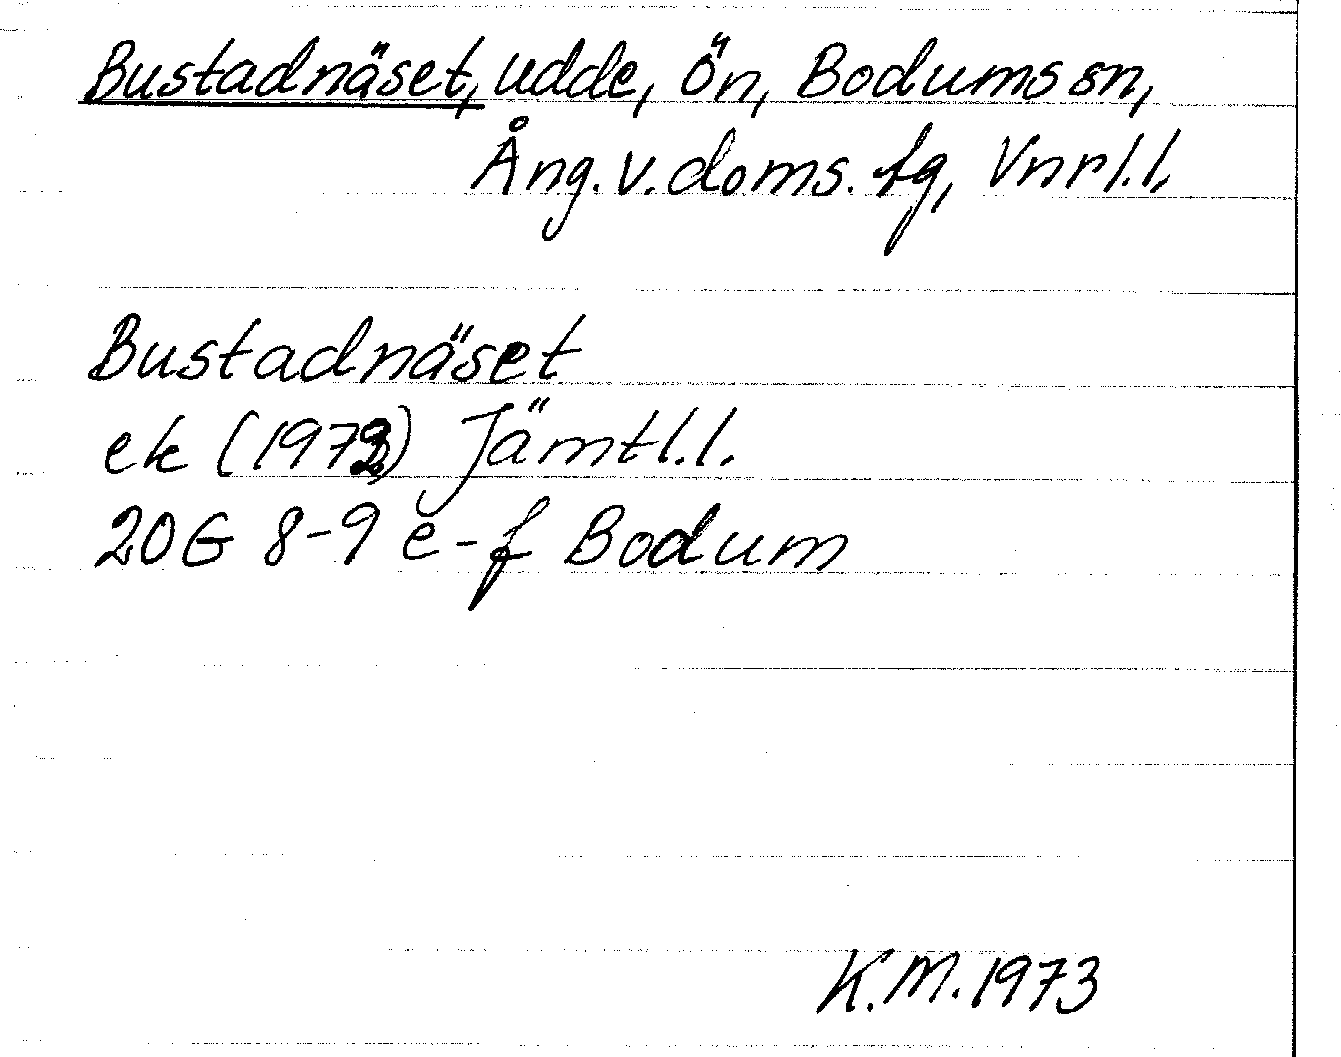 Bustadnäset, udde, Ön, Bodums sn,
Ång. v. doms. fg, Vnrl. l.
Bustadnäset
ek (1972) Jämtl. l.
20G 8-9 e-f Bodum
K.M. 1973